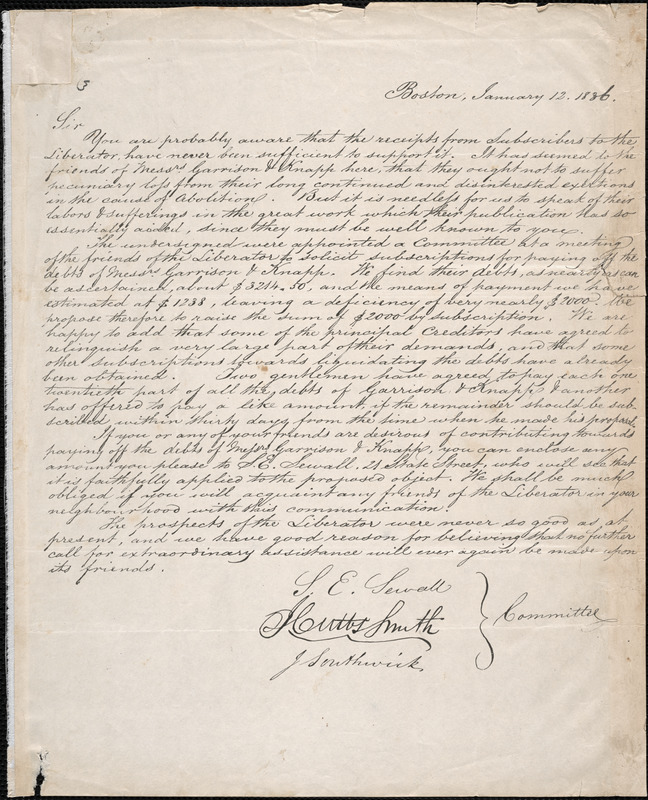 3
Boston, January 12. 1836.
Sir
You are probably aware that the receipts from Subscribers to the
Liberator, have never been sufficient to support it. It has seemed to the
friends of Messrs Garrison & Knapp here, that they ought not to suffer
pecuniary loss from their long continued and disinterested exertions
in the cause of Abolition. But it is needless for us to speak of their
labors & sufferings in the great work which their publication has so
essentially aided, since they must be well known to you.
The undersigned were appointed a Committee at a meeting
of the friends of the Liberator to solicit subscriptions for paying off the
debts of Messrs Garrison & Knapp. We find their debts, as nearly as can
be ascertained, about $3214.50, and the means of payment we have
estimated at $1238, leaving a deficiency of very nearly $2000. We
propose therefore to raise the sum of $2000 by subscription. We are
happy to add that some of the principal Creditors have agreed to
relinquish a very large part of their demands, and that some
other subscriptions towards liquidating the debts have already
been obtained. Two gentlemen have agreed to pay each one
twentieth part of all the debts of Garrison & Knapp & another
has offered to pay a like amount, if the remainder should be sub-
scribed within thirty days from the time when he made his proposal.
If you or any of your friends are desirous of contributing towards
paying off the debts of Messrs Garrison & Knapp, you can enclose any
amount you please to S.E. Sewall, 21 State Street, who will see that
it is faithfully applied to the proposed object. We shall be much
obliged if you will acquaint any friends of the Liberator in your
neighbourhood with this communication.
The prospects of the Liberator were never so good as at
present, and we have good reason for believing that no further
call for extraordinary assistance will ever again be made upon
its friends.
S. E. Sewall
J Cutts Smith
J Southwick
Committee